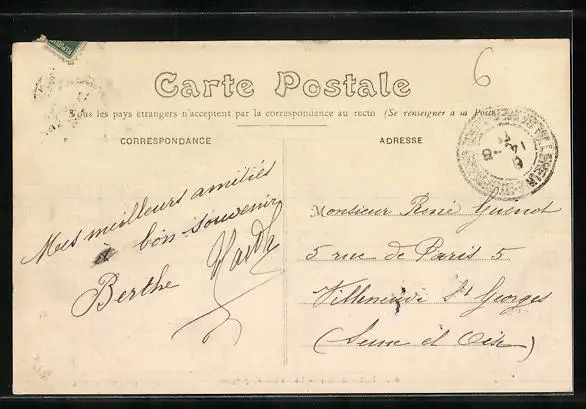 6
Carte Postale
Tous les pays étrangers n'acceptent par la correspondance au recto (Se renseigner a la Poste
CORRESPONDANCE
ADRESSE
Mes meilleurs amitiés
à bon souvenir
Berthe
Monsieur René Guenot
5 rue de Paris 5
Villeneuve St Georges
(Seine et Oise)